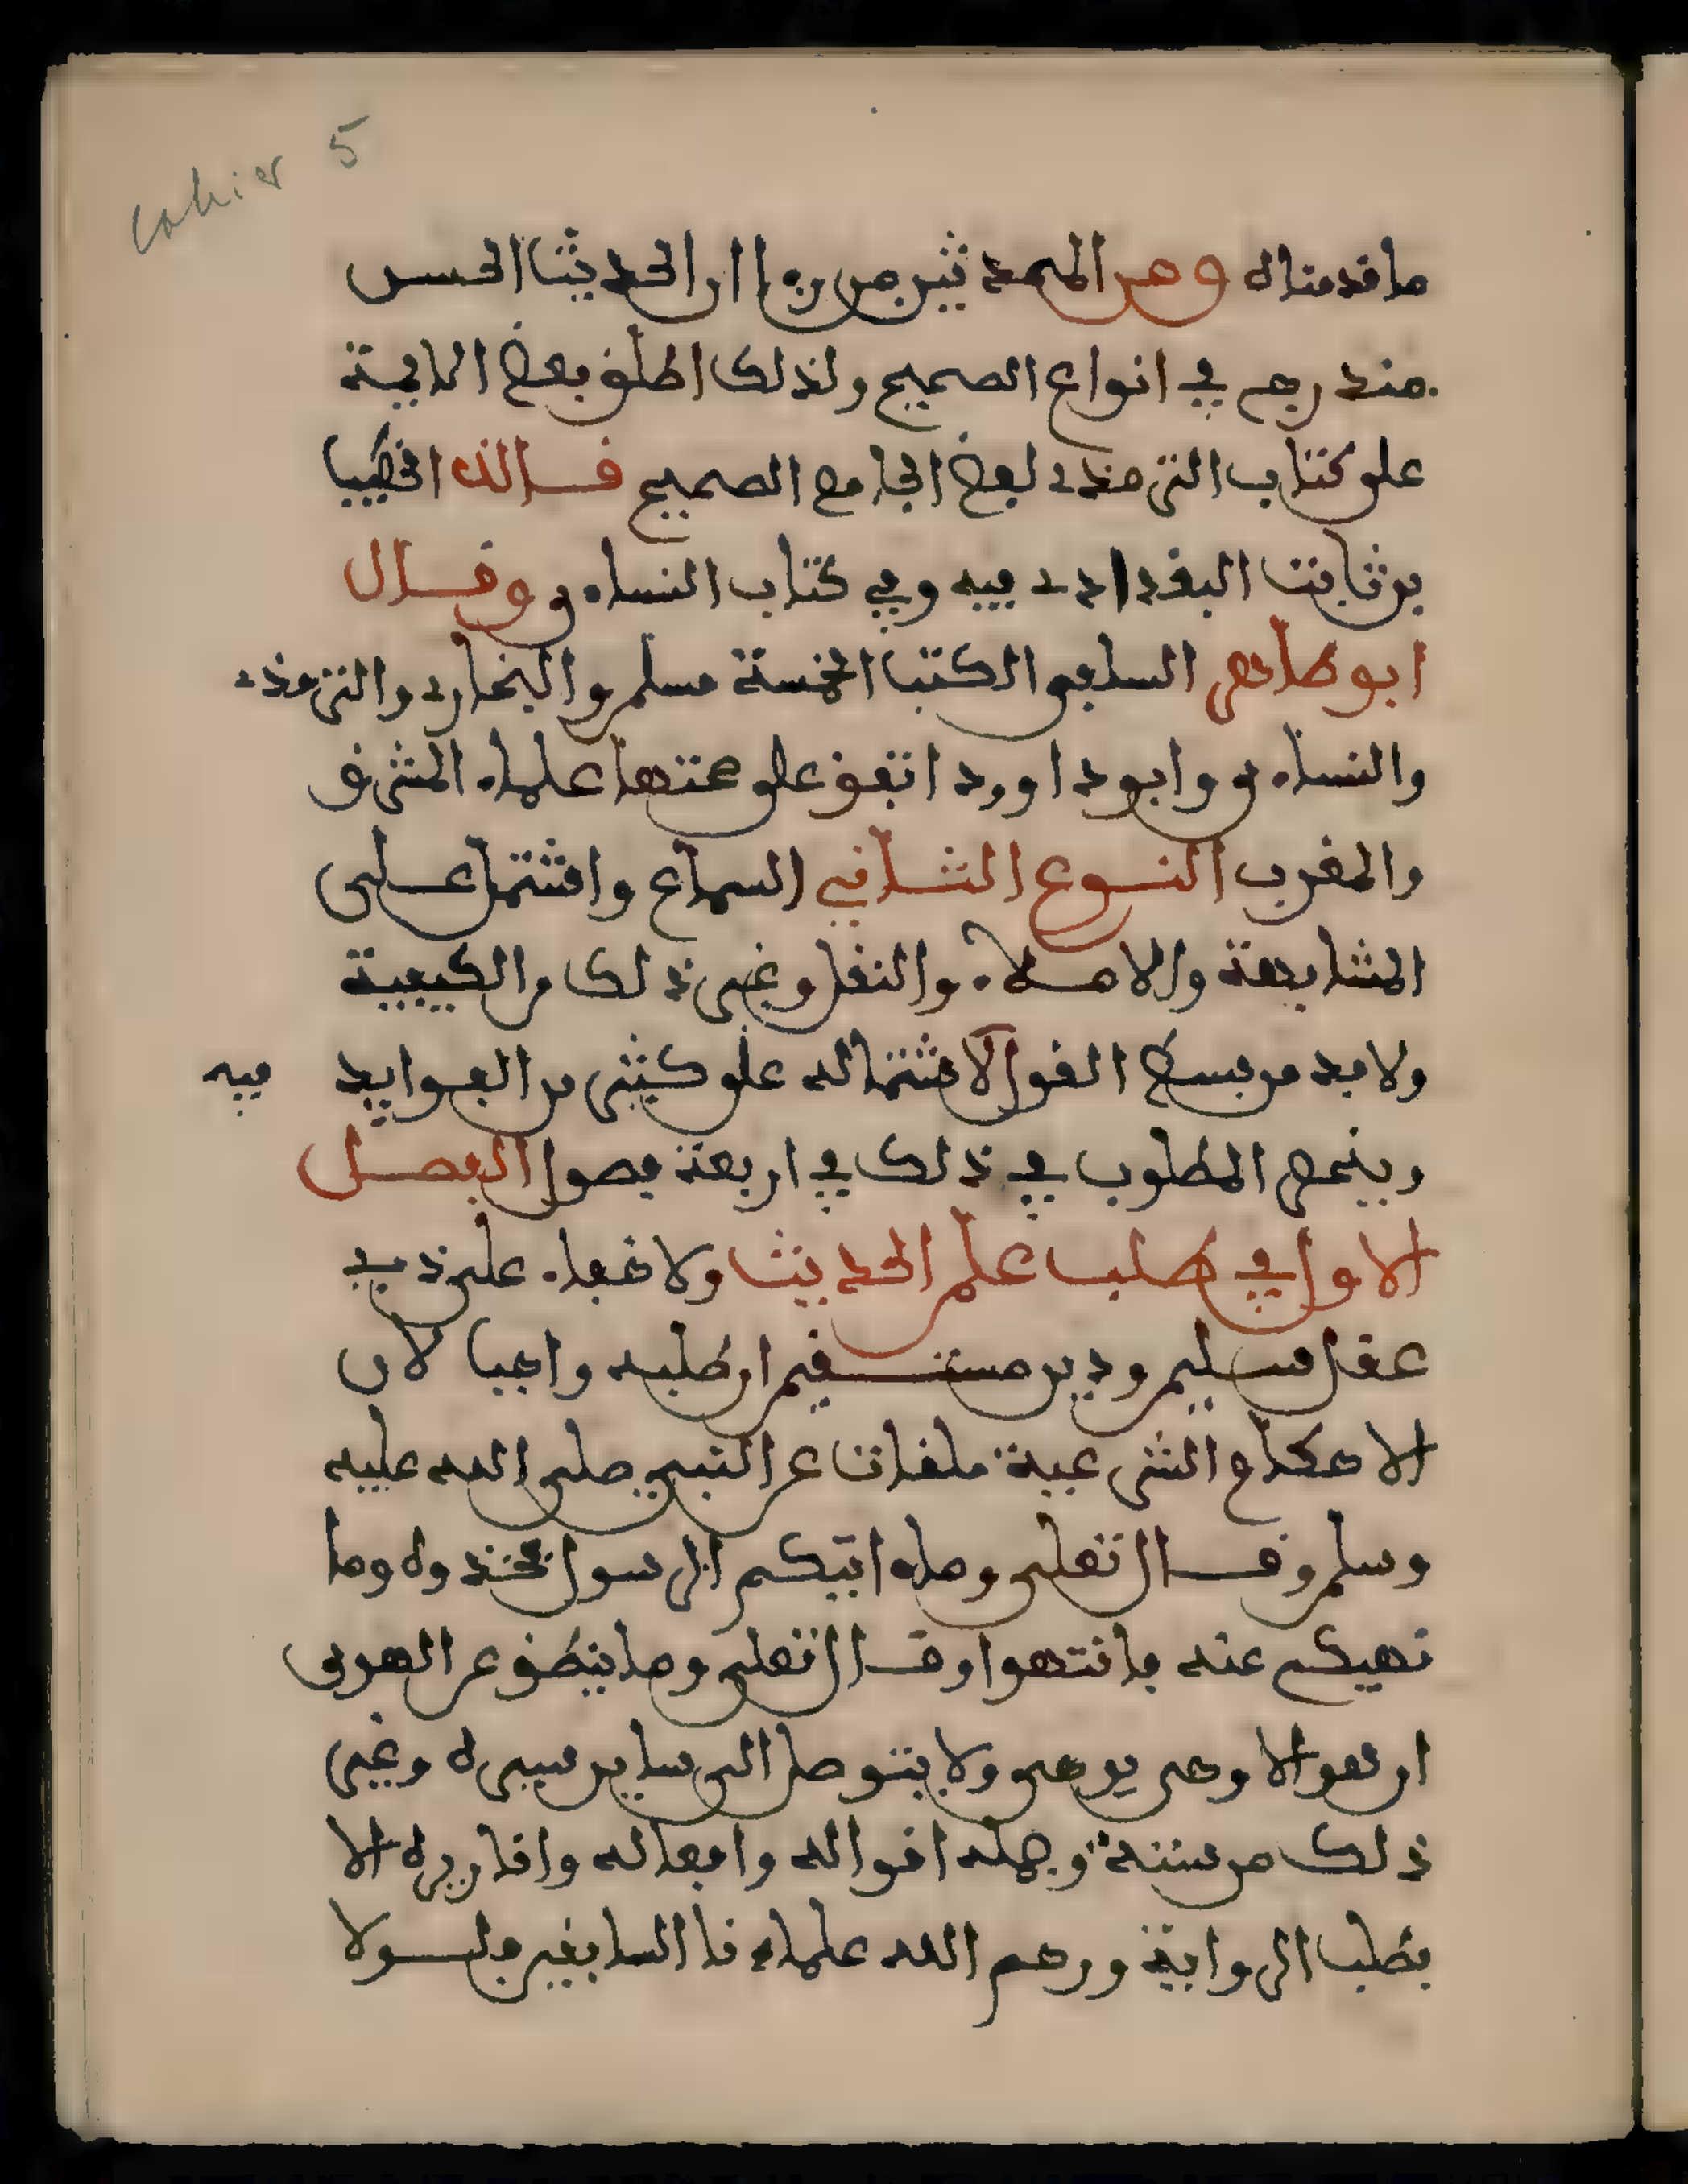 Cahier 5
ما قدمناه ومن المحدثين من رءا ان الحديث الحسن
مندرج في انواع الصحيح ولذلك اطلق بعض الايمة
على كتاب الترمذي لفظ الجامع الصحيح قاله الخطيب
بن ثابت البغدادي فيه وفي كتاب النساءي وقال
ابو طاهر السلفي الكتب الخمسة مسلم والبخاري والترمذي
والنساءي وابو داوود اتفق على صحتها علماء المشرق
والمغرب النوع الثاني السماع واشتمل على
المشابهة والاملاء والنقل وغير ذلك من الكيفية
ولا بد من بسط القول لاشتماله على كثير من الفوايد فيه
وينحصر المطلوب في ذلك في اربعة فصول الفصل
الاول في طلب علم الحديث ولا خفاء على ذي
عقل سليم ودين مستقيم ان طلبه واجب لان
الاحكام الشرعية ملقات عن النبي صلى الله عليه
وسلم وقال تعلى وما ءاتيكم الرسول فخذوه وما
نهيكم عنه فانتهوا وقال تعلى وما ينطق عن الهوى
ان هو الا وحي يوحى ولا يتوصل الى ساير سيره وغير
ذلك من سننه وجمله اقواله وافعاله واقاريره الا
بطلب الرواية ورحم الله علماءنا السابقين فلولا